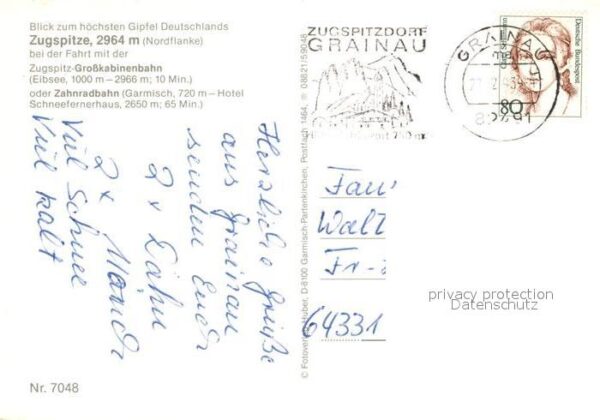 Blick zum höchsten Gipfel Deutschlands
Zugspitze, 2964 m (Nordflanke)
bei der Fahrt mit der
Zugspitz-Großkabinenbahn
(Eibsee, 1000 m – 2966 m; 10 Min.)
oder Zahnradbahn (Garmisch, 720 m – Hotel
Schneefernerhaus, 2650 m; 65 Min.)
Herzliche Grüße
aus Grainau
senden Euch
2 x Dähn
2 x
Viel Schnee
Viel kalt
Nr. 7048
© Fotoverlag Huber, D-8100 Garmisch-Partenkirchen, Postfach 1464, ☎ 08821/59048
ZUGSPITZDORF
GRAINAU
GRAINAU
Deutsche Bundespost
80
Fam
Walt
Fr-
64331
privacy protection
Datenschutz